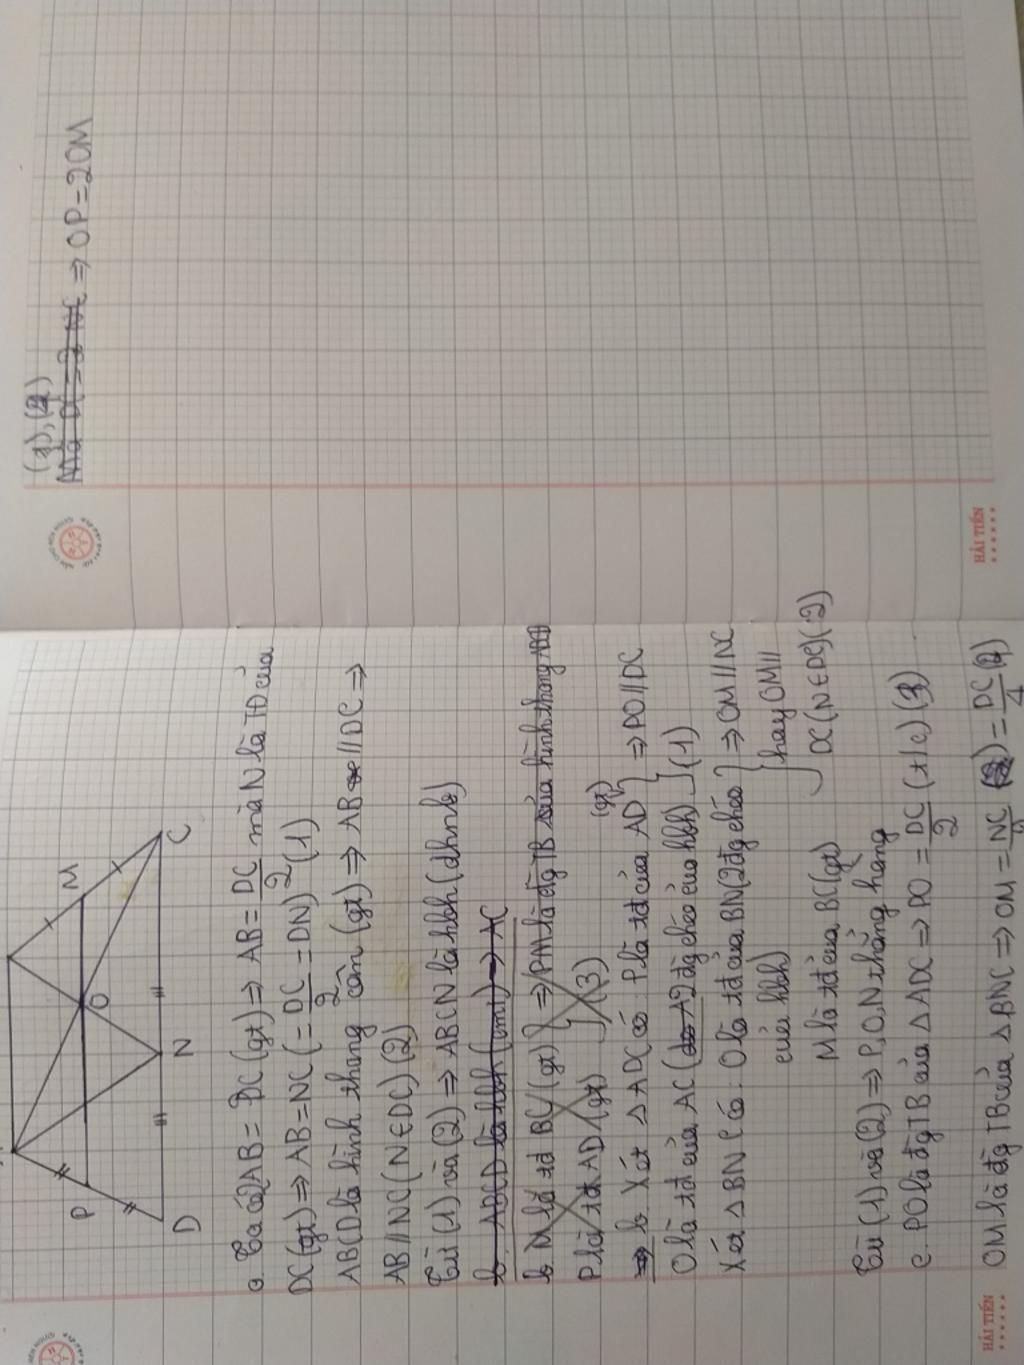 P
M
O
D
N
C
a. Ta có 2AB = DC (gt) ⇒ AB = DC/2 mà N là TĐ của
DC (gt) ⇒ AB = NC (= DC/2 = DN) (1)
ABCD là hình thang cân (gt) ⇒ AB // DC ⇒
AB // NC (N ∈ DC) (2)
Từ (1) và (2) ⇒ ABCN là hbh (dhnb)
b. ABCD là hbh (cmt) ⇒ AC
b. M là tđ BC (gt) } ⇒ PM là đg TB của hình thang
P là tđ AD (gt) (3)
⇒ b. Xét △ ADC có: P là tđ của AD (gt) } ⇒ PO // DC
O là tđ của AC (2 đg chéo của hbh) (1)
Xét △ BNC có: O là tđ của BN (2 đg chéo } ⇒ OM // NC
của hbh) hay OM //
M là tđ của BC (gt) DC (N ∈ DC) (2)
Từ (1) và (2) ⇒ P, O, N thẳng hàng
c. PO là đg TB của △ ADC ⇒ PO = DC/2 (t/c) (3)
OM là đg TB của △ BNC ⇒ OM = NC/2 = DC/4
HẢI TIẾN
Mà DC = 2 NC ⇒ OP = 2OM
HẢI TIẾN